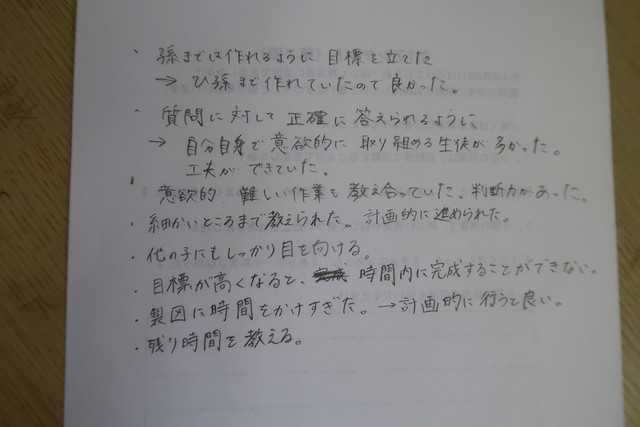 ・ 孫までは作れるように 目標を立てた
→ ひ孫まで作れていたので良かった。
・ 質問に対して正確に答えられるように
→ 自分自身で意欲的に取り組める生徒が多かった。
工夫ができていた。
・ 意欲的 難しい作業も教え合っていた、判断力があった。
・ 細かいところまで教えられた。計画的に進められた。
・ 他の子にもしっかり目を向ける。
・ 目標が高くなると、時間内に完成することができない。
・ 製図に時間をかけすぎた。→計画的に行うと良い。
・ 残り時間を教える。